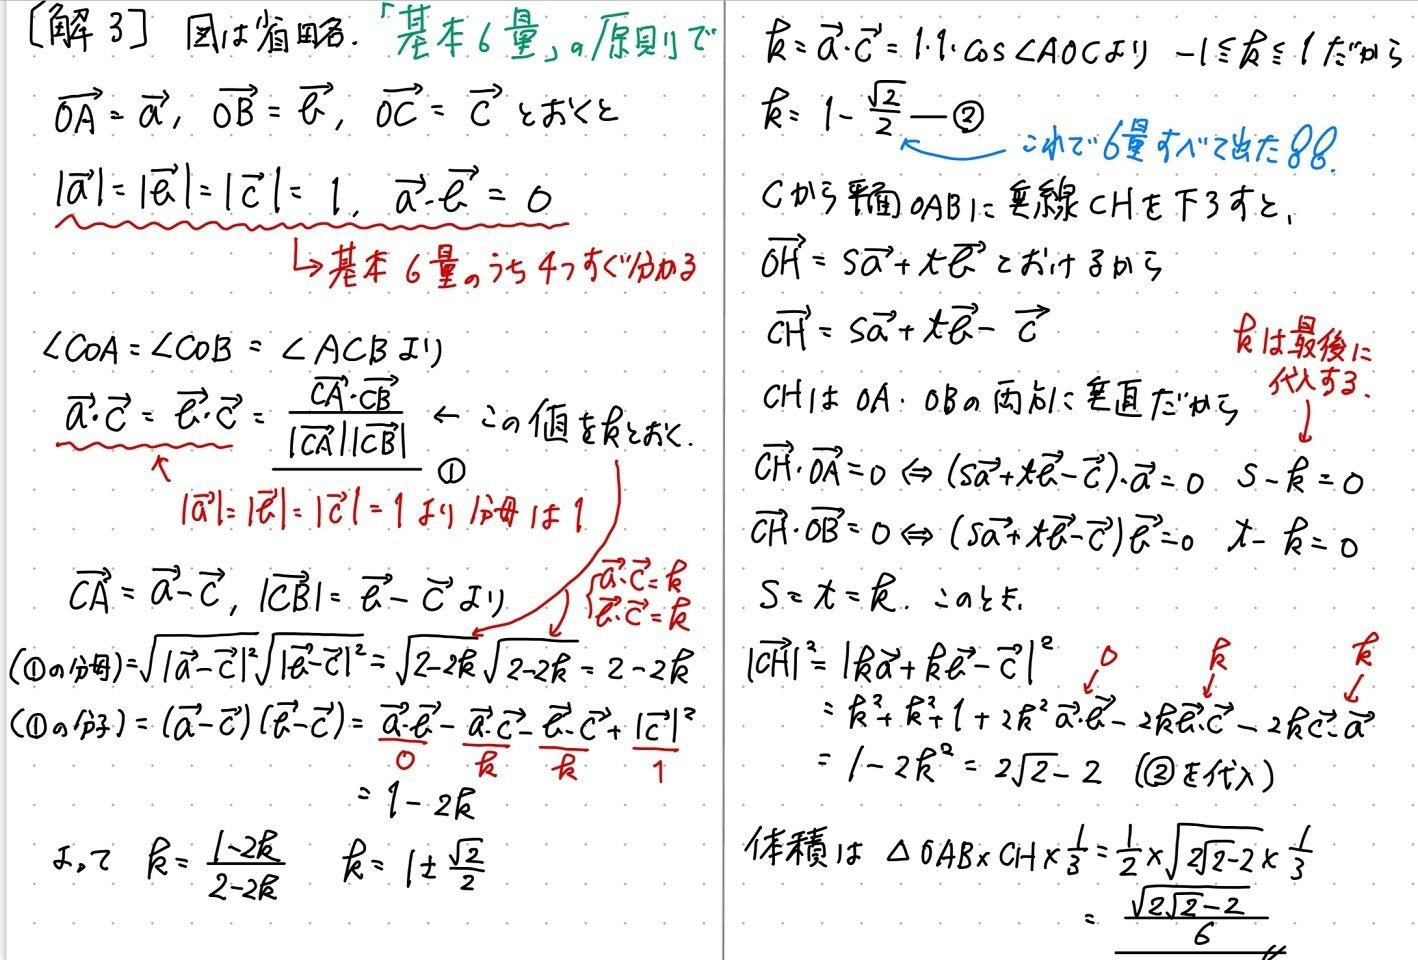 [解3] 図は省略. 「基本6量」の原則で
$\overrightarrow{OA} = \vec{a}, \overrightarrow{OB} = \vec{b}, \overrightarrow{OC} = \vec{c}$ とおくと
$|\vec{a}| = |\vec{b}| = |\vec{c}| = 1, \vec{a} \cdot \vec{b} = 0$
↳ 基本6量のうち4つすぐ分かる
∠COA = ∠COB = ∠ACBより
$\vec{a} \cdot \vec{c} = \vec{b} \cdot \vec{c} = \frac{\overrightarrow{CA} \cdot \overrightarrow{CB}}{|\overrightarrow{CA}||\overrightarrow{CB}|}$ ① ← この値をkとおく.
$|\vec{a}| = |\vec{b}| = |\vec{c}| = 1$ より分母は1
$\overrightarrow{CA} = \vec{a} - \vec{c}, |\overrightarrow{CB}| = \vec{b} - \vec{c}$ より
$\vec{a} \cdot \vec{c} = k$
$\vec{b} \cdot \vec{c} = k$
(①の分母) = $\sqrt{|\vec{a} - \vec{c}|^2}\sqrt{|\vec{b} - \vec{c}|^2} = \sqrt{2-2k}\sqrt{2-2k} = 2-2k$
(①の分子) = $(\vec{a} - \vec{c})(\vec{b} - \vec{c}) = \vec{a} \cdot \vec{b} - \vec{a} \cdot \vec{c} - \vec{b} \cdot \vec{c} + |\vec{c}|^2$
0 k k 1
= 1 - 2k
よって $k = \frac{1-2k}{2-2k}$ $k = 1 \pm \frac{\sqrt{2}}{2}$
$k = \vec{a} \cdot \vec{c} = 1 \cdot 1 \cdot \cos∠AOC$より $-1 \leqq k \leqq 1$ だから
$k = 1 - \frac{\sqrt{2}}{2}$ — ②
これで6量すべて出た!!
Cから平面OABに垂線CHを下ろすと,
$\overrightarrow{OH} = s\vec{a} + t\vec{b}$ とおけるから
$\overrightarrow{CH} = s\vec{a} + t\vec{b} - \vec{c}$
kは最後に
代入する.
CHはOA・OBの両方に垂直だから
$\overrightarrow{CH} \cdot \overrightarrow{OA} = 0 ⇔ (s\vec{a} + t\vec{b} - \vec{c}) \cdot \vec{a} = 0$ $s - k = 0$
$\overrightarrow{CH} \cdot \overrightarrow{OB} = 0 ⇔ (s\vec{a} + t\vec{b} - \vec{c})\vec{b} = 0$ $t - k = 0$
s = t = k. このとき,
$|\overrightarrow{CH}|^2 = |k\vec{a} + k\vec{b} - \vec{c}|^2$
0 k k
$= k^2 + k^2 + 1 + 2k^2\vec{a} \cdot \vec{b} - 2k\vec{b} \cdot \vec{c} - 2k\vec{c} \cdot \vec{a}$
$= 1 - 2k^2 = 2\sqrt{2} - 2$ (②を代入)
体積は $△OAB \times CH \times \frac{1}{3} = \frac{1}{2} \times \sqrt{2\sqrt{2}-2} \times \frac{1}{3}$
$= \frac{\sqrt{2\sqrt{2}-2}}{6}$